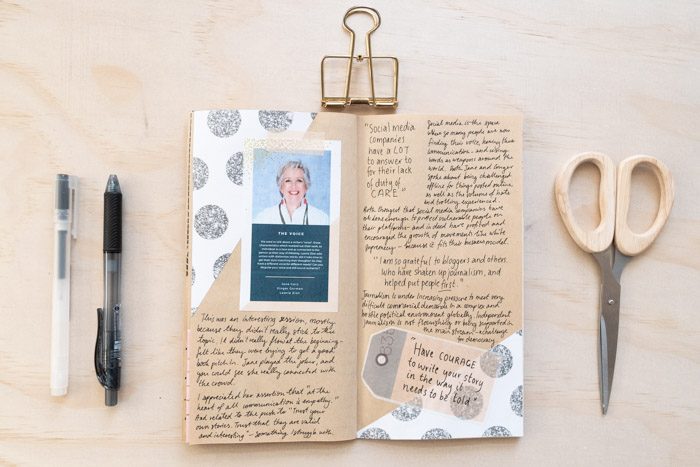 THE VOICE
Jane Caro
Ginger Gorman
This was an interesting session, mostly
because they didn't really stick to the
topic. It didn't really flow at the beginning -
felt like they were trying to get a good
book pitch in. Jane played the joker, and
you could see she really connected with
the crowd.
I appreciated her assertion that "at the
heart of all communication is empathy."
And related to the push to "Trust your
own stories. Trust that they are valid
and interesting" - something I struggle with.
"Social media
companies
have a LOT
to answer to
for their lack
of duty of
CARE"
Social media is the space
where so many people are now
finding their voice, honing their
communication - and using
words as weapons around the
world. Both Jane and Ginger
spoke about being challenged
offline for things posted online
as well as the volume of hate
and trolling experienced.
Both thought that social media companies have
not done enough to protect vulnerable people on
their platforms - and indeed have profited and
encouraged the growth of movements like white
supremacy - because it fits their business model.
"I am so grateful to bloggers and others
who have shaken up journalism, and
helped put people first."
Journalism is under increasing pressure to meet very
difficult commercial demands in a complex and
hostile political environment globally. Independent
journalism is not flourishing or being supported in
the main stream - a challenge
for democracy
"Have COURAGE
to write your story
in the way it
needs to be told"